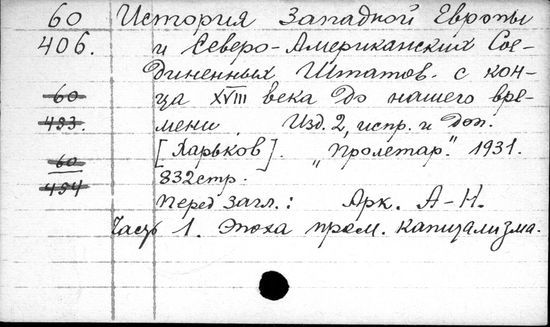 60 История Западной Европы
406. и Северо-Американских Сое-
диненных Штатов с кон-
60 ца XVIII века до нашего вре-
493. мени. Изд. 2, испр. и доп.
60 [Харьков]. „Пролетар." 1931.
494 832 стр.
Перед загл.: Арк. А-Н.
Часть 1. Эпоха пром. капитализма.